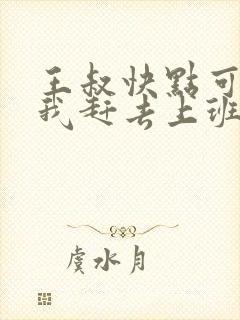 王叔快點可
我赶去上班
虞水月